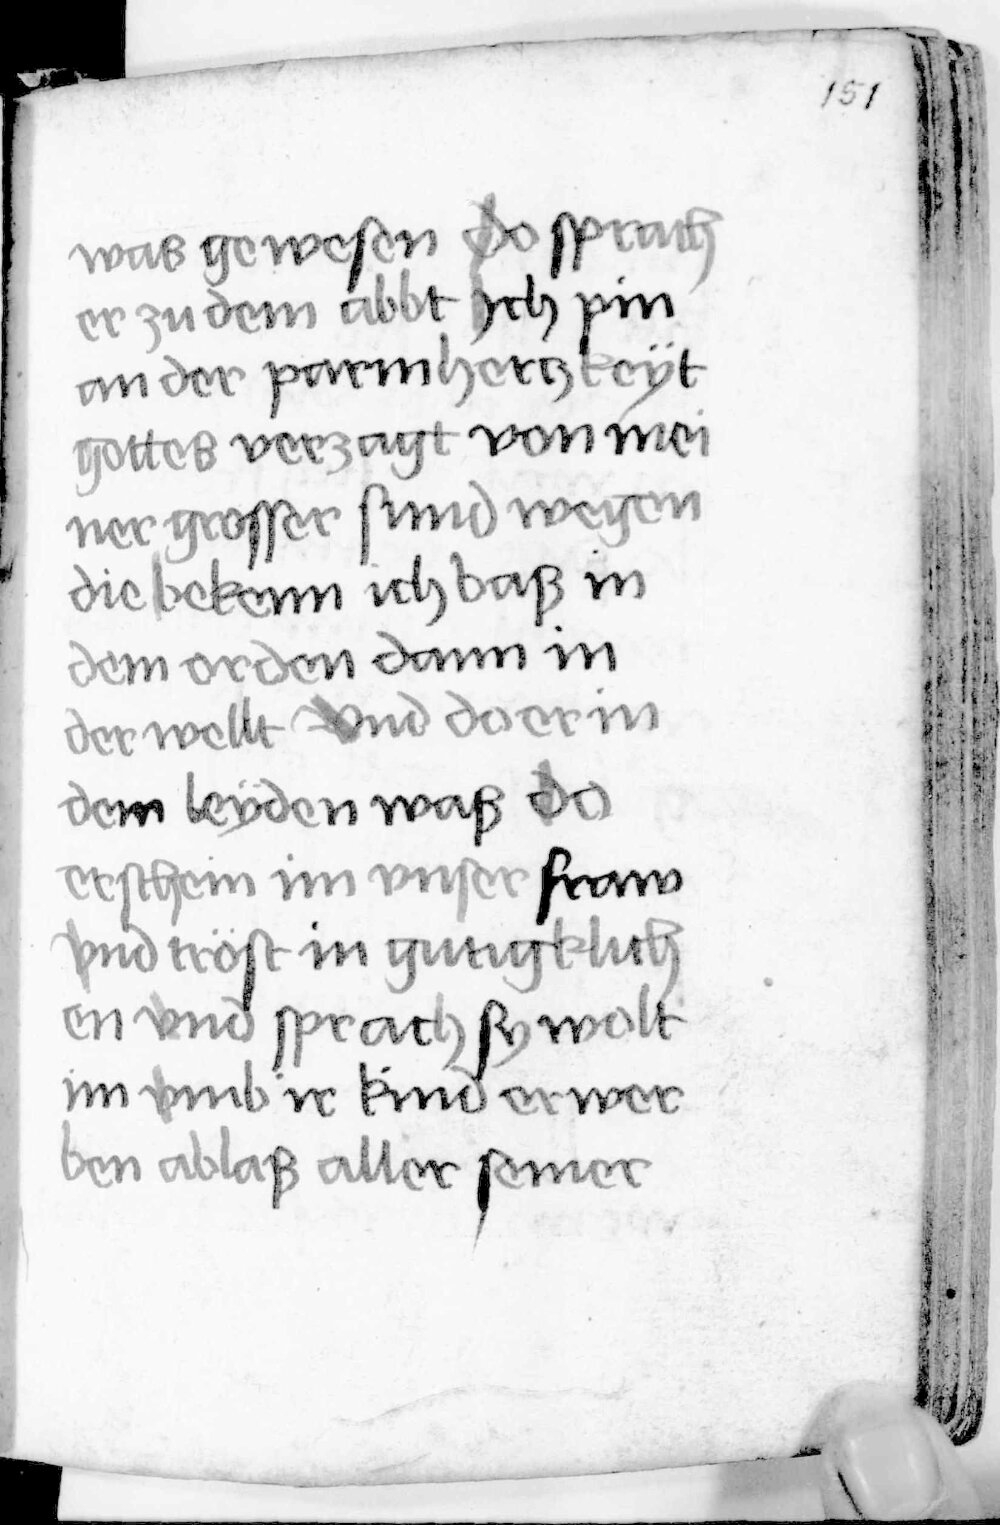 151
was gewesen Do sprach
er zu dem abbt Ich pin
an der parmhertzkeÿt
gottes verzagt von mei
ner grosser sund wegen
die bekenn ich baß in
dem orden dann in
der wellt Vnd do er in
dem leÿden waß Do
erschein im vnser fraw
vnd tröst in gutigklich
en vnd sprach sy wolt
im vmb ir kind erwer
ben ablaß aller seiner